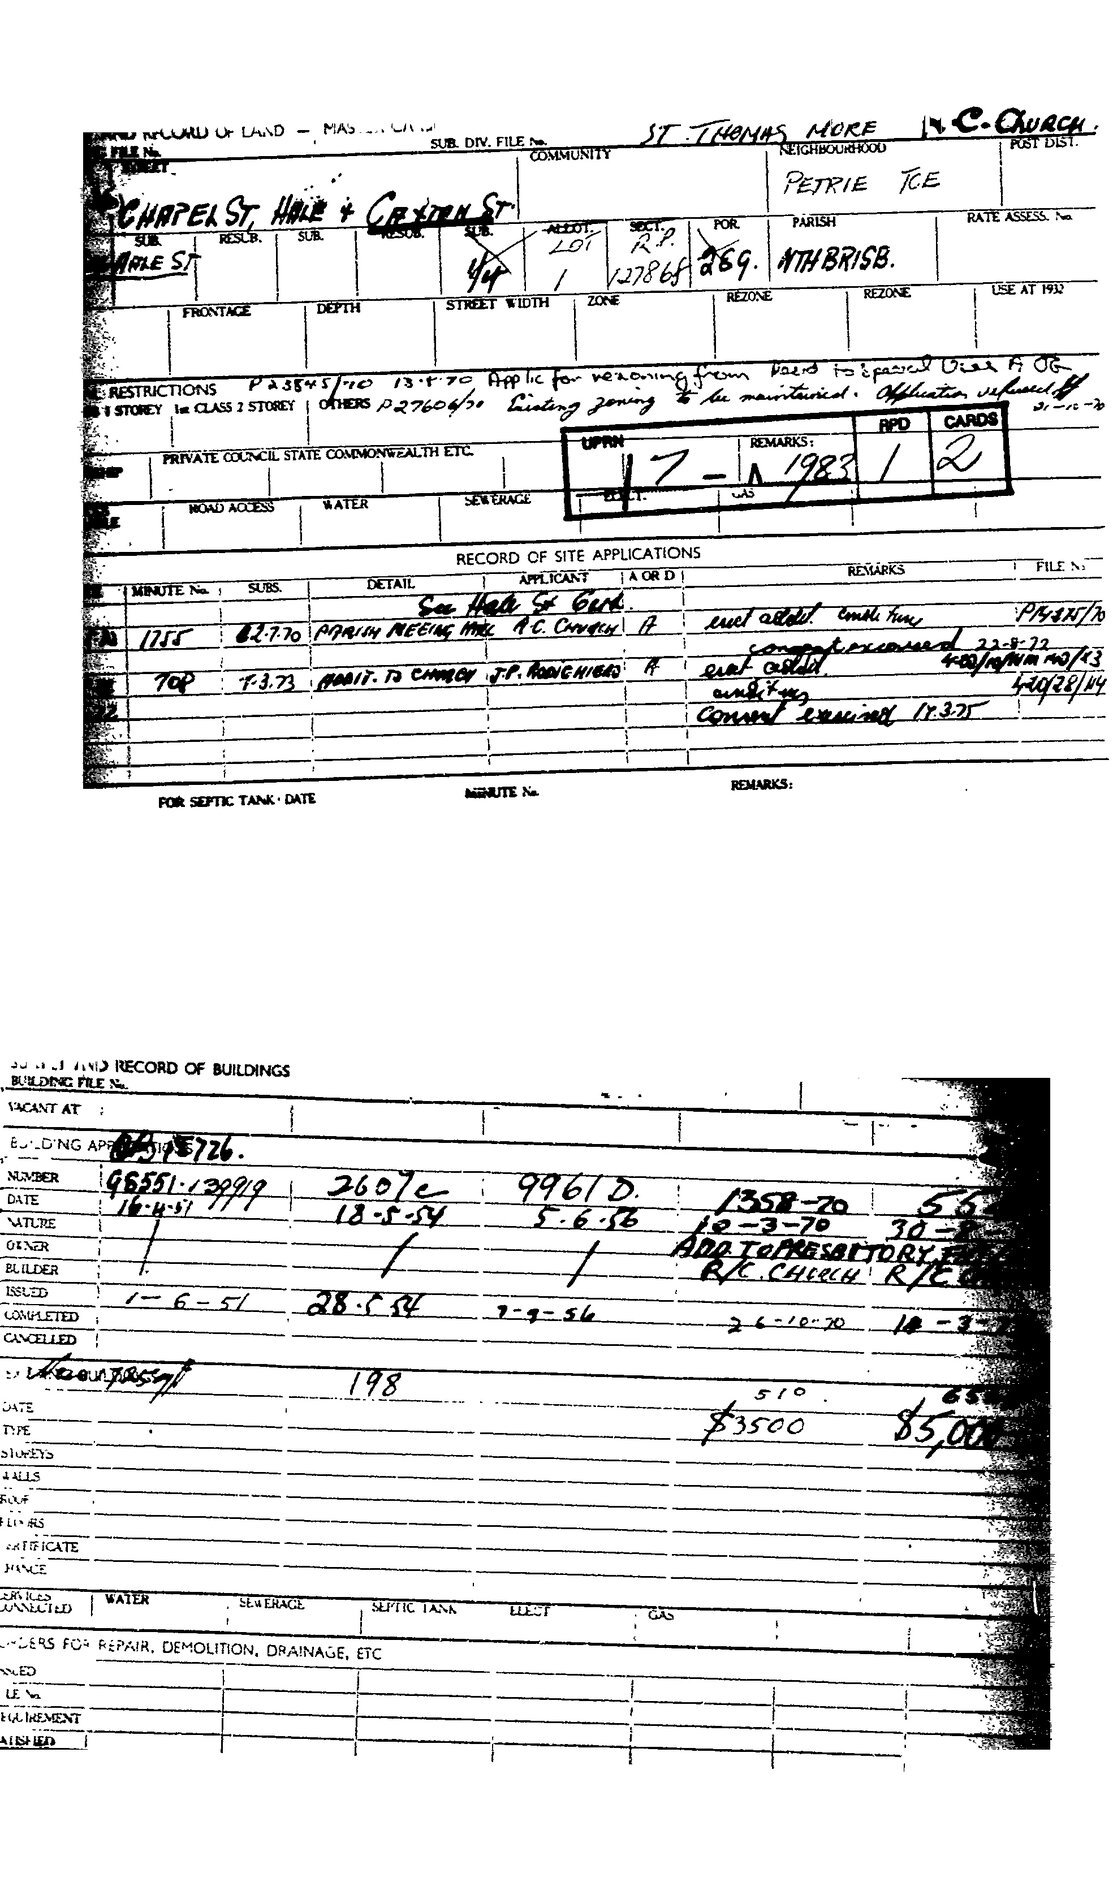 RECORD OF LAND — MASTER CARD
SUB. DIV. FILE No. ST. THOMAS MORE R.C. CHURCH.
FILE No.
STREET COMMUNITY NEIGHBOURHOOD POST DIST.
PETRIE TCE
CHAPEL ST, HALE & CAXTON ST.
SUB. RESUB. SUB. RESUB. SUB. ALLOT. SECT. POR. PARISH RATE ASSESS. No.
HALE ST 4/4 LOT 1 R.P. 127868 269. NTH BRISB.
FRONTAGE DEPTH STREET WIDTH ZONE REZONE REZONE USE AT 1932
RESTRICTIONS P23845/70 13-8-70 Applic for rezoning from to Special Uses
1 STOREY 1st CLASS 2 STOREY OTHERS P27606/70 Existing zoning to be maintained. Application refused
21-10-70
UPRN REMARKS: RPD CARDS
17 - 1983 1 2
PRIVATE COUNCIL STATE COMMONWEALTH ETC.
ROAD ACCESS WATER SEWERAGE ELECT. GAS
RECORD OF SITE APPLICATIONS
MINUTE No. SUBS. DETAIL APPLICANT A OR D REMARKS FILE No.
See Hale St Card.
1755 2.7.70 PARISH MEETING HALL R.C. CHURCH A
consent exercised 22-8-72
708 7.3.73 ADDIT. TO CHURCH J.P. A
420/28/
Consent exercised 17.3.75
FOR SEPTIC TANK · DATE MINUTE No. REMARKS:
AND RECORD OF BUILDINGS
BUILDING FILE No.
VACANT AT
BUILDING APPLICATIONS 726.
NUMBER 98551-139919 2607c 9961D. 1358-70 55
DATE 16-4-51 18-5-54 5-6-56 10-3-70 30-
NATURE ADD. TO PRESBITORY
OWNER R/C. CHURCH R/C
BUILDER
ISSUED 1-6-51 28.5.54 7-9-56
COMPLETED 26-10-70 -3-
CANCELLED
198 510
DATE
TYPE $3500 $5,000
STOREYS
WALLS
ROOF
FLOORS
CERTIFICATE
SERVICES CONNECTED WATER SEWERAGE SEPTIC TANK ELECT GAS
ORDERS FOR REPAIR, DEMOLITION, DRAINAGE, ETC
ISSUED
FILE No.
REQUIREMENT
SATISFIED